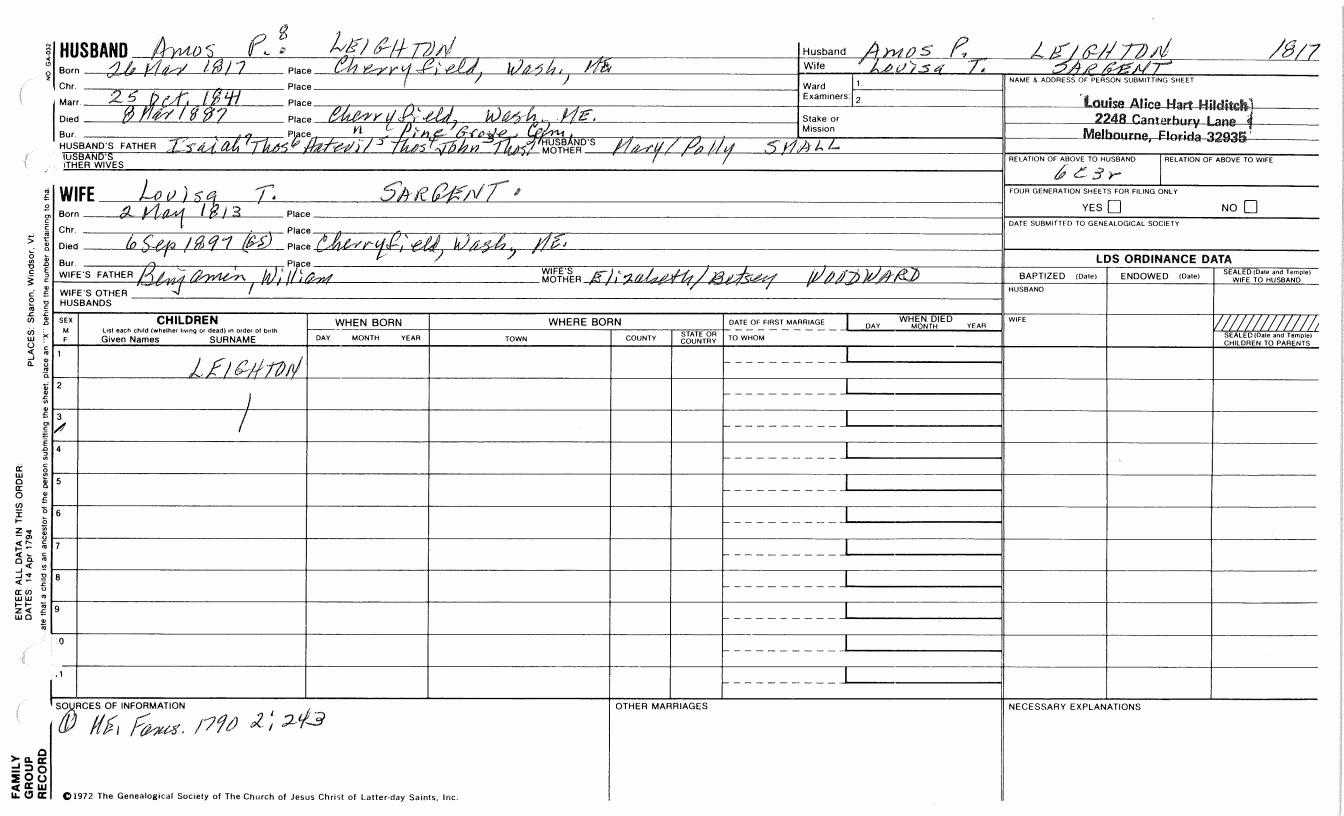 HUSBAND Amos P.8 LEIGHTON
Born 26 Mar 1817 Place Cherryfield, Wash., ME
Chr. Place
Marr. 25 Oct. 1841 Place
Died 8 Mar 1887 Place Cherryfield, Wash, ME.
Bur. Place " Pine Grove Cem.
HUSBAND'S FATHER Isaiah7 Thos6 Hatevil5 Thos4 John3 Thos2 HUSBAND'S MOTHER Mary/Polly SMALL
HUSBAND'S OTHER WIVES
Husband Amos P. LEIGHTON 1817
Wife Louisa T. SARGENT
Ward Examiners 1. 2.
Stake or Mission
NAME & ADDRESS OF PERSON SUBMITTING SHEET
Louise Alice Hart Hilditch
2248 Canterbury Lane
Melbourne, Florida 32935
RELATION OF ABOVE TO HUSBAND RELATION OF ABOVE TO WIFE
6C3r
FOUR GENERATION SHEETS FOR FILING ONLY
YES NO
DATE SUBMITTED TO GENEALOGICAL SOCIETY
WIFE Louisa T. SARGENT.
Born 2 May 1813 Place
Chr. Place
Died 6 Sep 1897 (GS) Place Cherryfield, Wash, ME.
Bur. Place
WIFE'S FATHER Benjamin, William WIFE'S MOTHER Elizabeth/Betsey WOODWARD
WIFE'S OTHER HUSBANDS
LDS ORDINANCE DATA
BAPTIZED (Date) ENDOWED (Date) SEALED (Date and Temple) WIFE TO HUSBAND
HUSBAND
WIFE
SEALED (Date and Temple) CHILDREN TO PARENTS
SEX M F
CHILDREN
List each child (whether living or dead) in order of birth
Given Names SURNAME
WHEN BORN
DAY MONTH YEAR
WHERE BORN
TOWN COUNTY STATE OR COUNTRY
DATE OF FIRST MARRIAGE
TO WHOM
WHEN DIED
DAY MONTH YEAR
1 LEIGHTON
2
3
4
5
6
7
8
9
0
.1
SOURCES OF INFORMATION
① ME, Fams. 1790 2; 243
OTHER MARRIAGES
NECESSARY EXPLANATIONS
©1972 The Genealogical Society of The Church of Jesus Christ of Latter-day Saints, Inc.
FAMILY GROUP RECORD
ENTER ALL DATA IN THIS ORDER:
DATES: 14 Apr 1794
PLACES: Sharon, Windsor, Vt.
ate that a child is an ancestor of the person submitting the sheet, place an "X" behind the number pertaining to tha
NO GA-032